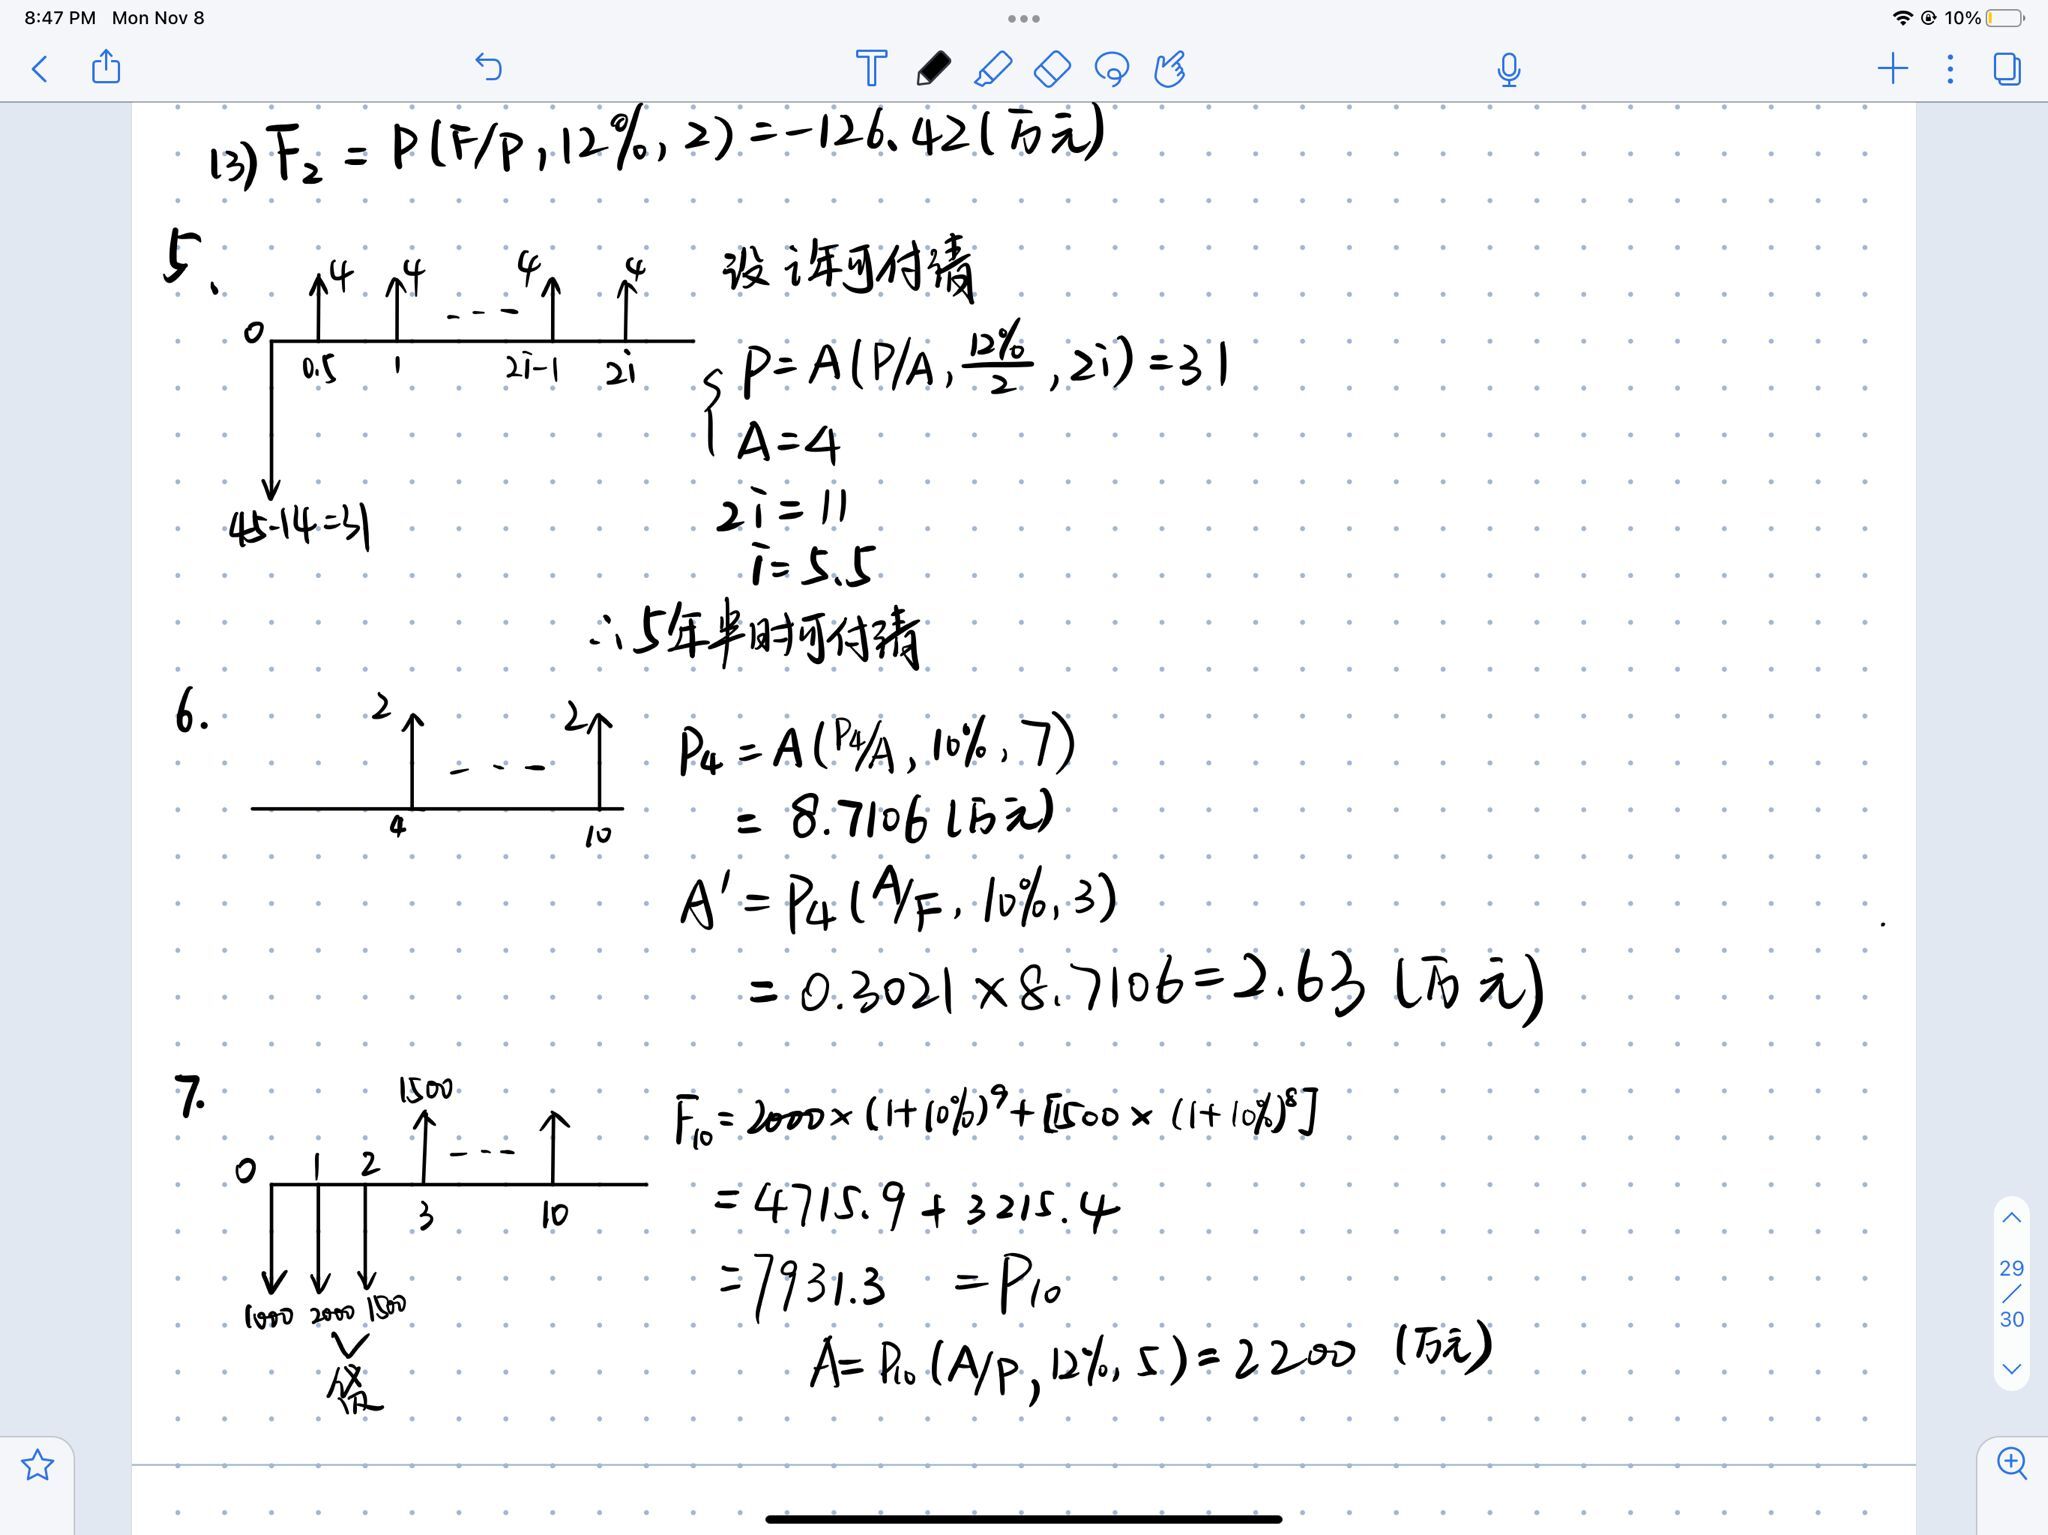 8:47 PM Mon Nov 8
10%
T
(3) F₂ = P(F/P, 12%, 2) = -126.42(万元)
5、
4 4 --- 4 4
0
0.5 1 2i-1 2i
45-14=31
设 i年可付清
P=A(P/A, 12%/2, 2i)=31
A=4
2i=11
i=5.5
∴5年半时可付清
6.
2 --- 2
4 10
P₄ = A(P₄/A, 10%, 7)
= 8.7106 (万元)
A' = P₄ (A/F, 10%, 3)
= 0.3021×8.7106=2.63 (万元)
7.
1500
0 1 2 ---
3 10
1000 2000 1500
F₁₀ = 2000×(1+10%)⁹+[1500×(1+10%)⁸]
= 4715.9 + 3215.4
=7931.3 =P₁₀
A= P₁₀ (A/P, 12%, 5)=2200 (万元)
29
/
30